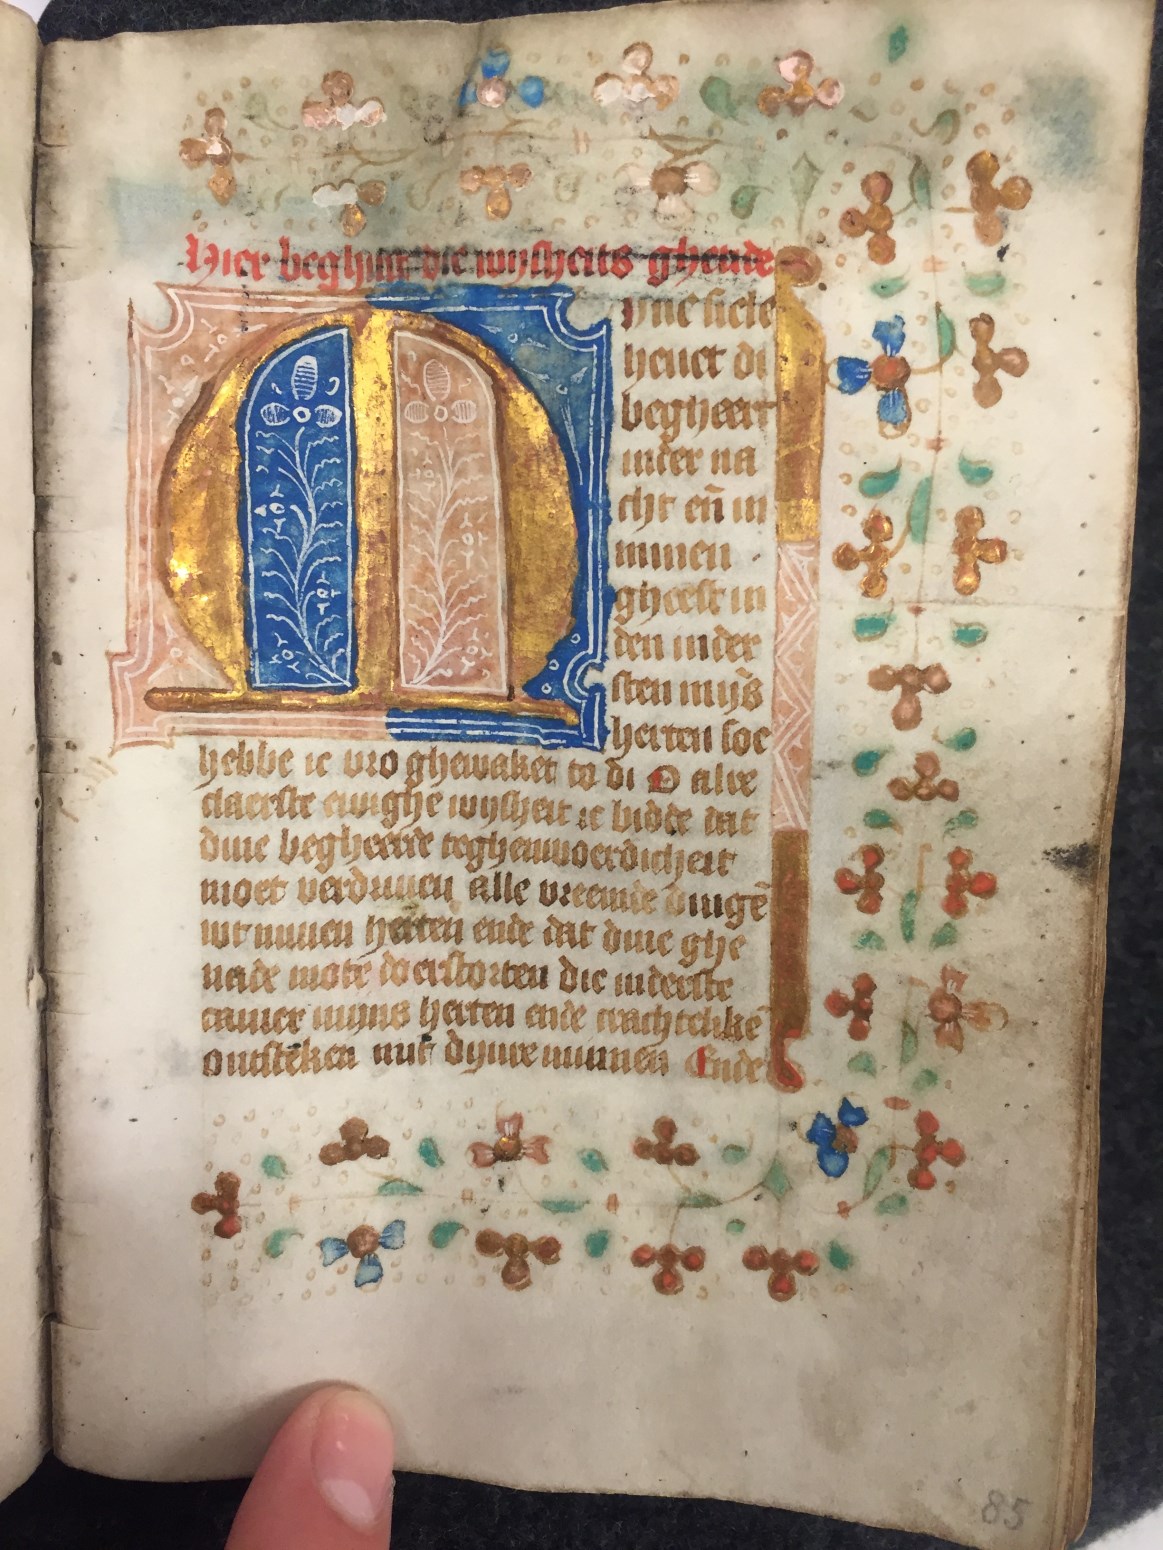 Hier beghint die wijsheits ghetide
Mijne siele
heuet di
begheert
inder na
cht eñ in
minen
gheest in
den inder
sten mijs
herten soe
hebbe ic vro ghewaket to di O alre
claerste ewighe wijsheit ic bidde dat
dine begheerde teghenwoerdicheit
moet verdriuen alle vreemde dingē
wt minen herten ende dat dine ghe
nade mote doerstorten die inderste
camer mijns herten ende crachtelikē
ontsteken mit dijnre minnen Ende
85